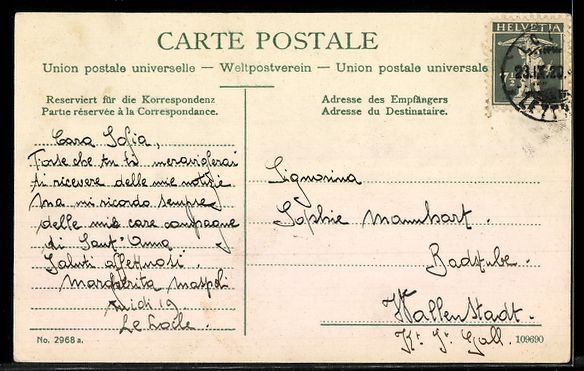 CARTE POSTALE
Union postale universelle — Weltpostverein — Union postale universale
Reserviert für die Korrespondenz
Partie réservée à la Correspondance.
Adresse des Empfängers
Adresse du Destinataire.
HELVETIA
7½
23.IX.20.
Cara Sofia,
Forse che tu ti meraviglerai
di ricevere delle mie notizie
ma mi ricordo sempre
delle mie care compagne
di Sant'Anna
Saluti affettuosi.
Margherita Maspoli
19
Le Locle.
Signorina
Sophie Mannhart.
Badstube.
Wallenstadt.
Kt. St. Gall.
No. 2968 a.
109690